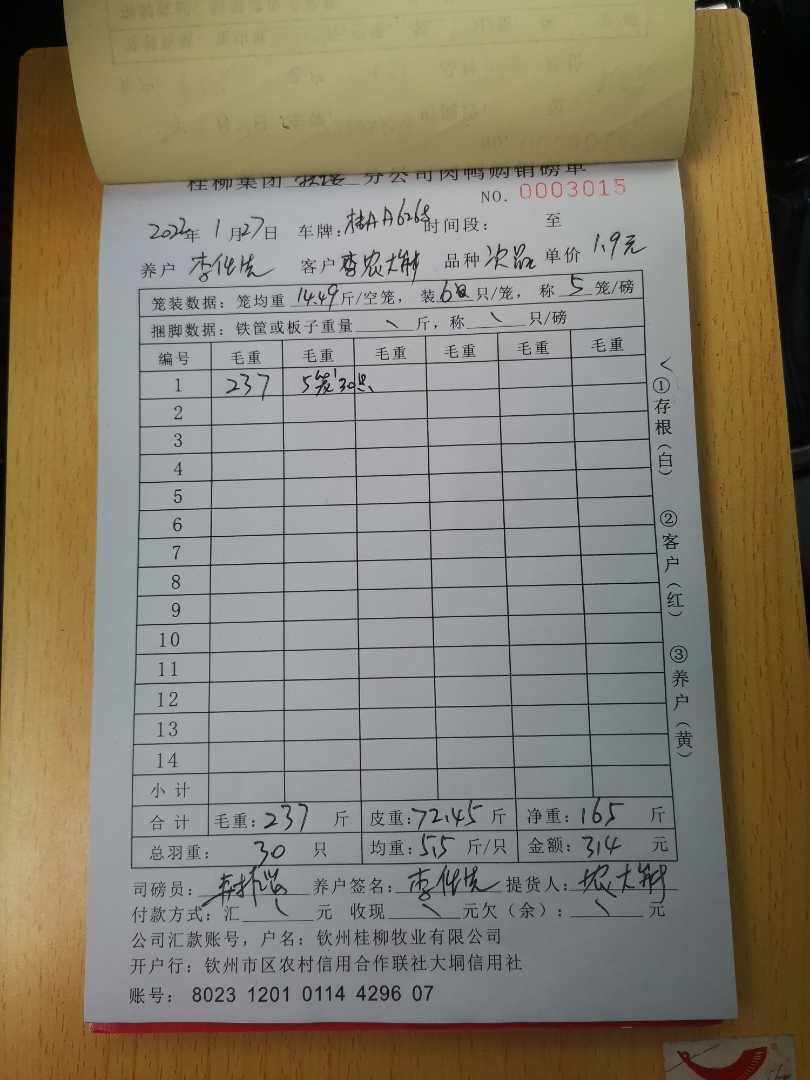 桂柳集团 分公司肉鸭购销磅单
NO. 0003015
2022年 1月27日 车牌: 桂AA6265 时间段: 至
养户 李仕先 客户 农大科 品种 次品 单价 1.9元
笼装数据: 笼均重 14.49 斤/空笼, 装 6 只/笼, 称 5 笼/磅
捆脚数据: 铁筐或板子重量 \ 斤, 称 \ 只/磅
编号 毛重 毛重 毛重 毛重 毛重 毛重
1 237 5笼30只
2
3
4
5
6
7
8
9
10
11
12
13
14
小计
合计 毛重: 237 斤 皮重: 72.45 斤 净重: 165 斤
总羽重: 30 只 均重: 5.5 斤/只 金额: 314 元
司磅员: 养户签名: 李仕先 提货人: 农大科
付款方式: 汇 \ 元 收现 \ 元欠(余): \ 元
公司汇款账号, 户名: 钦州桂柳牧业有限公司
开户行: 钦州市区农村信用合作联社大垌信用社
账号: 8023 1201 0114 4296 07
①存根(白) ②客户(红) ③养户(黄)